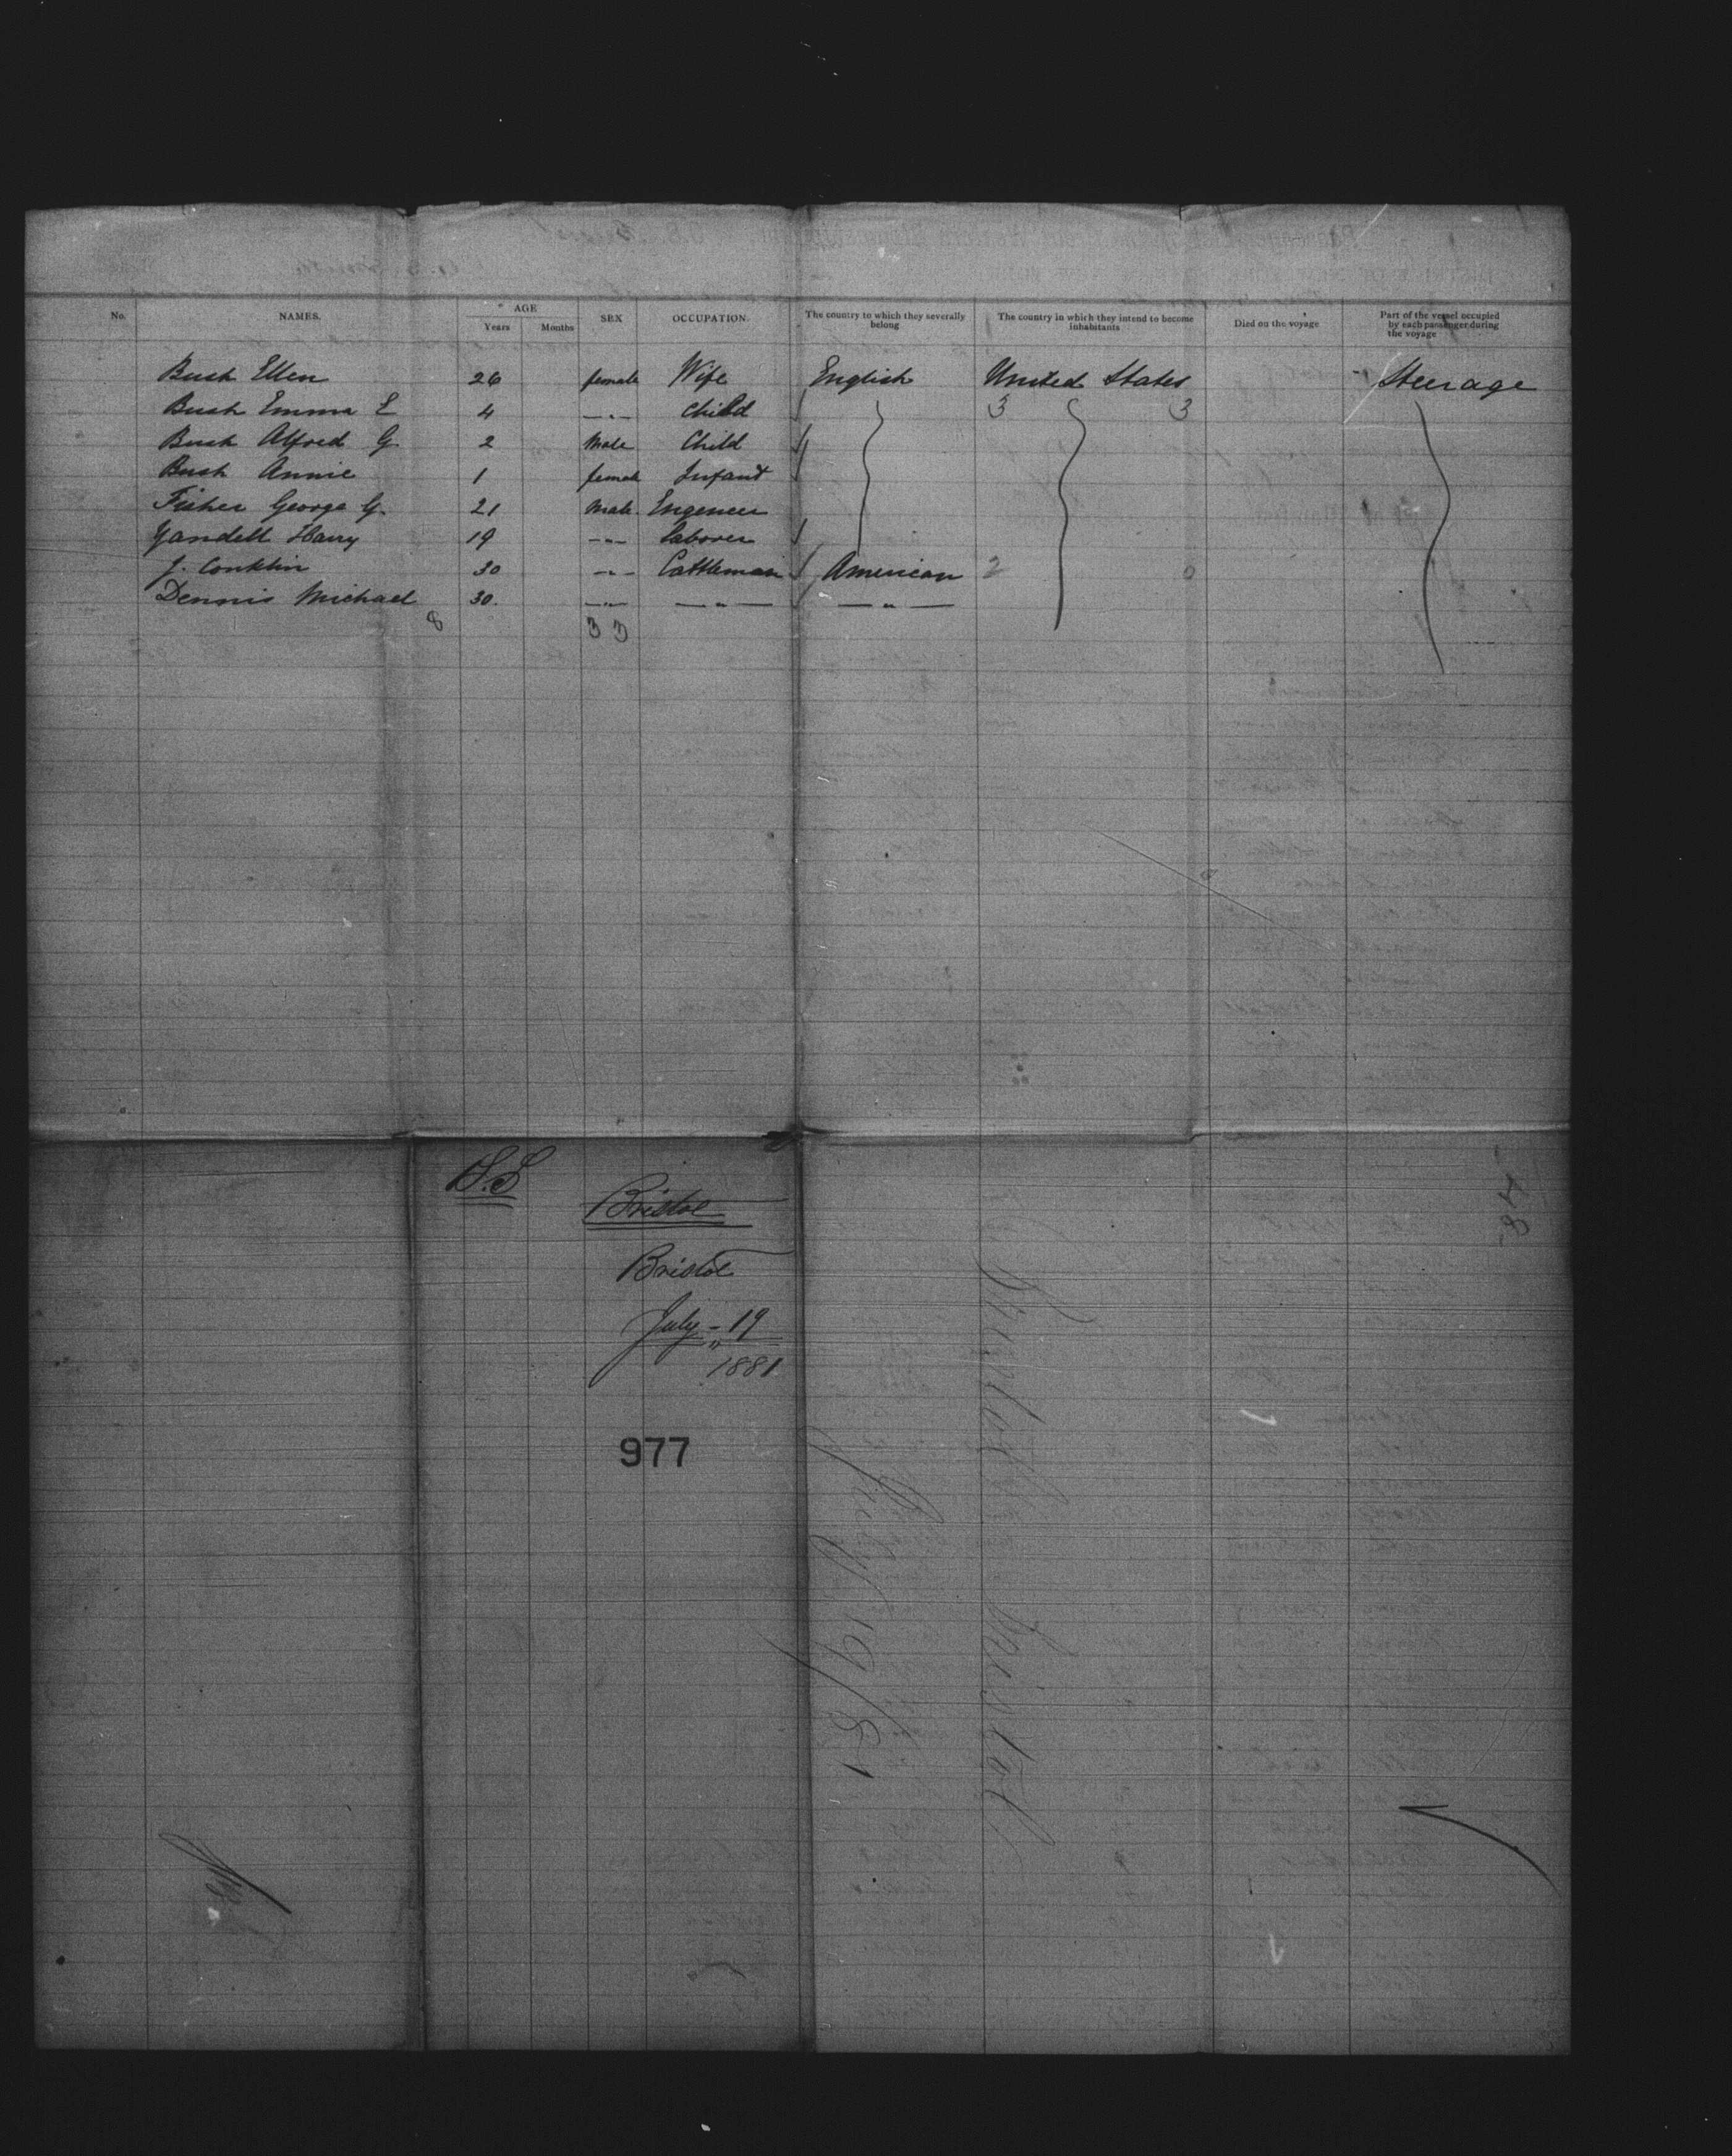 No. NAMES. AGE Years Months SEX OCCUPATION. The country to which they severally belong The country in which they intend to become inhabitants Died on the voyage Part of the vessel occupied by each passenger during the voyage
Bush Ellen 26 female Wife English United States Steerage
Bush Emma E 4 —"— Child 3 3
Bush Alfred G. 2 Male Child
Bush Annie 1 female Infant
Fisher George G. 21 Male. Engeneer
Yandell Harry 19 —"— Laborer
J. Conklin 30 —"— Cattleman American 2 0
Dennis Michael 30. —"— —"— —"—
8 3 3
S.S
Bristol
Bristol
July - 19
1881
977
July 19/81
Bristol